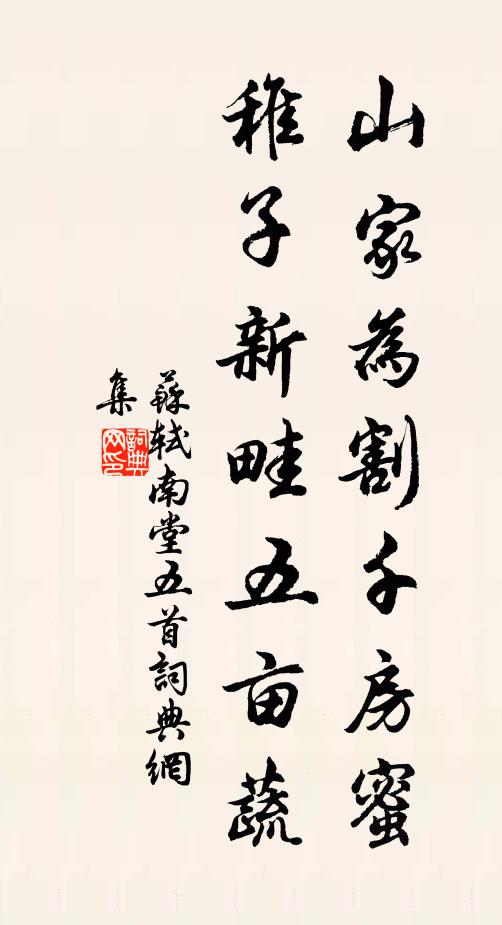 山家為割千房蜜
稚子新畦五亩蔬
蘇軾南堂五首詞典網
集
詞典网印